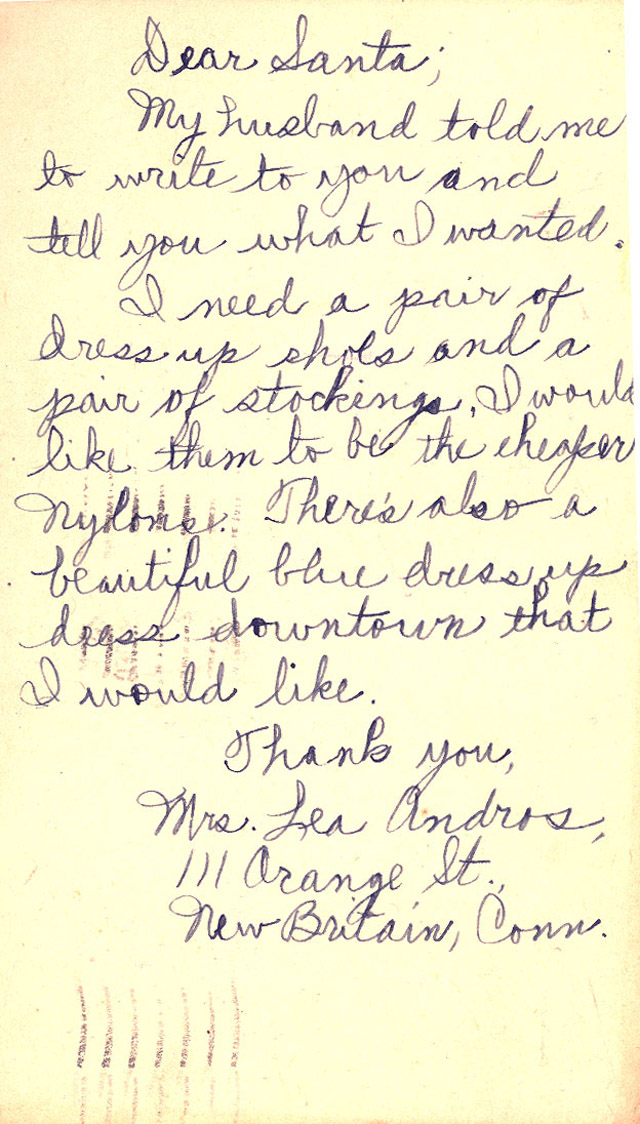 Dear Santa;
My husband told me
to write to you and
tell you what I wanted.
I need a pair of
dress up shoes and a
pair of stockings, I would
like them to be the cheaper
Nylons. There's also a
beautiful blue dress up
dress downtown that
I would like.
Thank you,
Mrs. Lea Andros,
111 Orange St.,
New Britain, Conn.